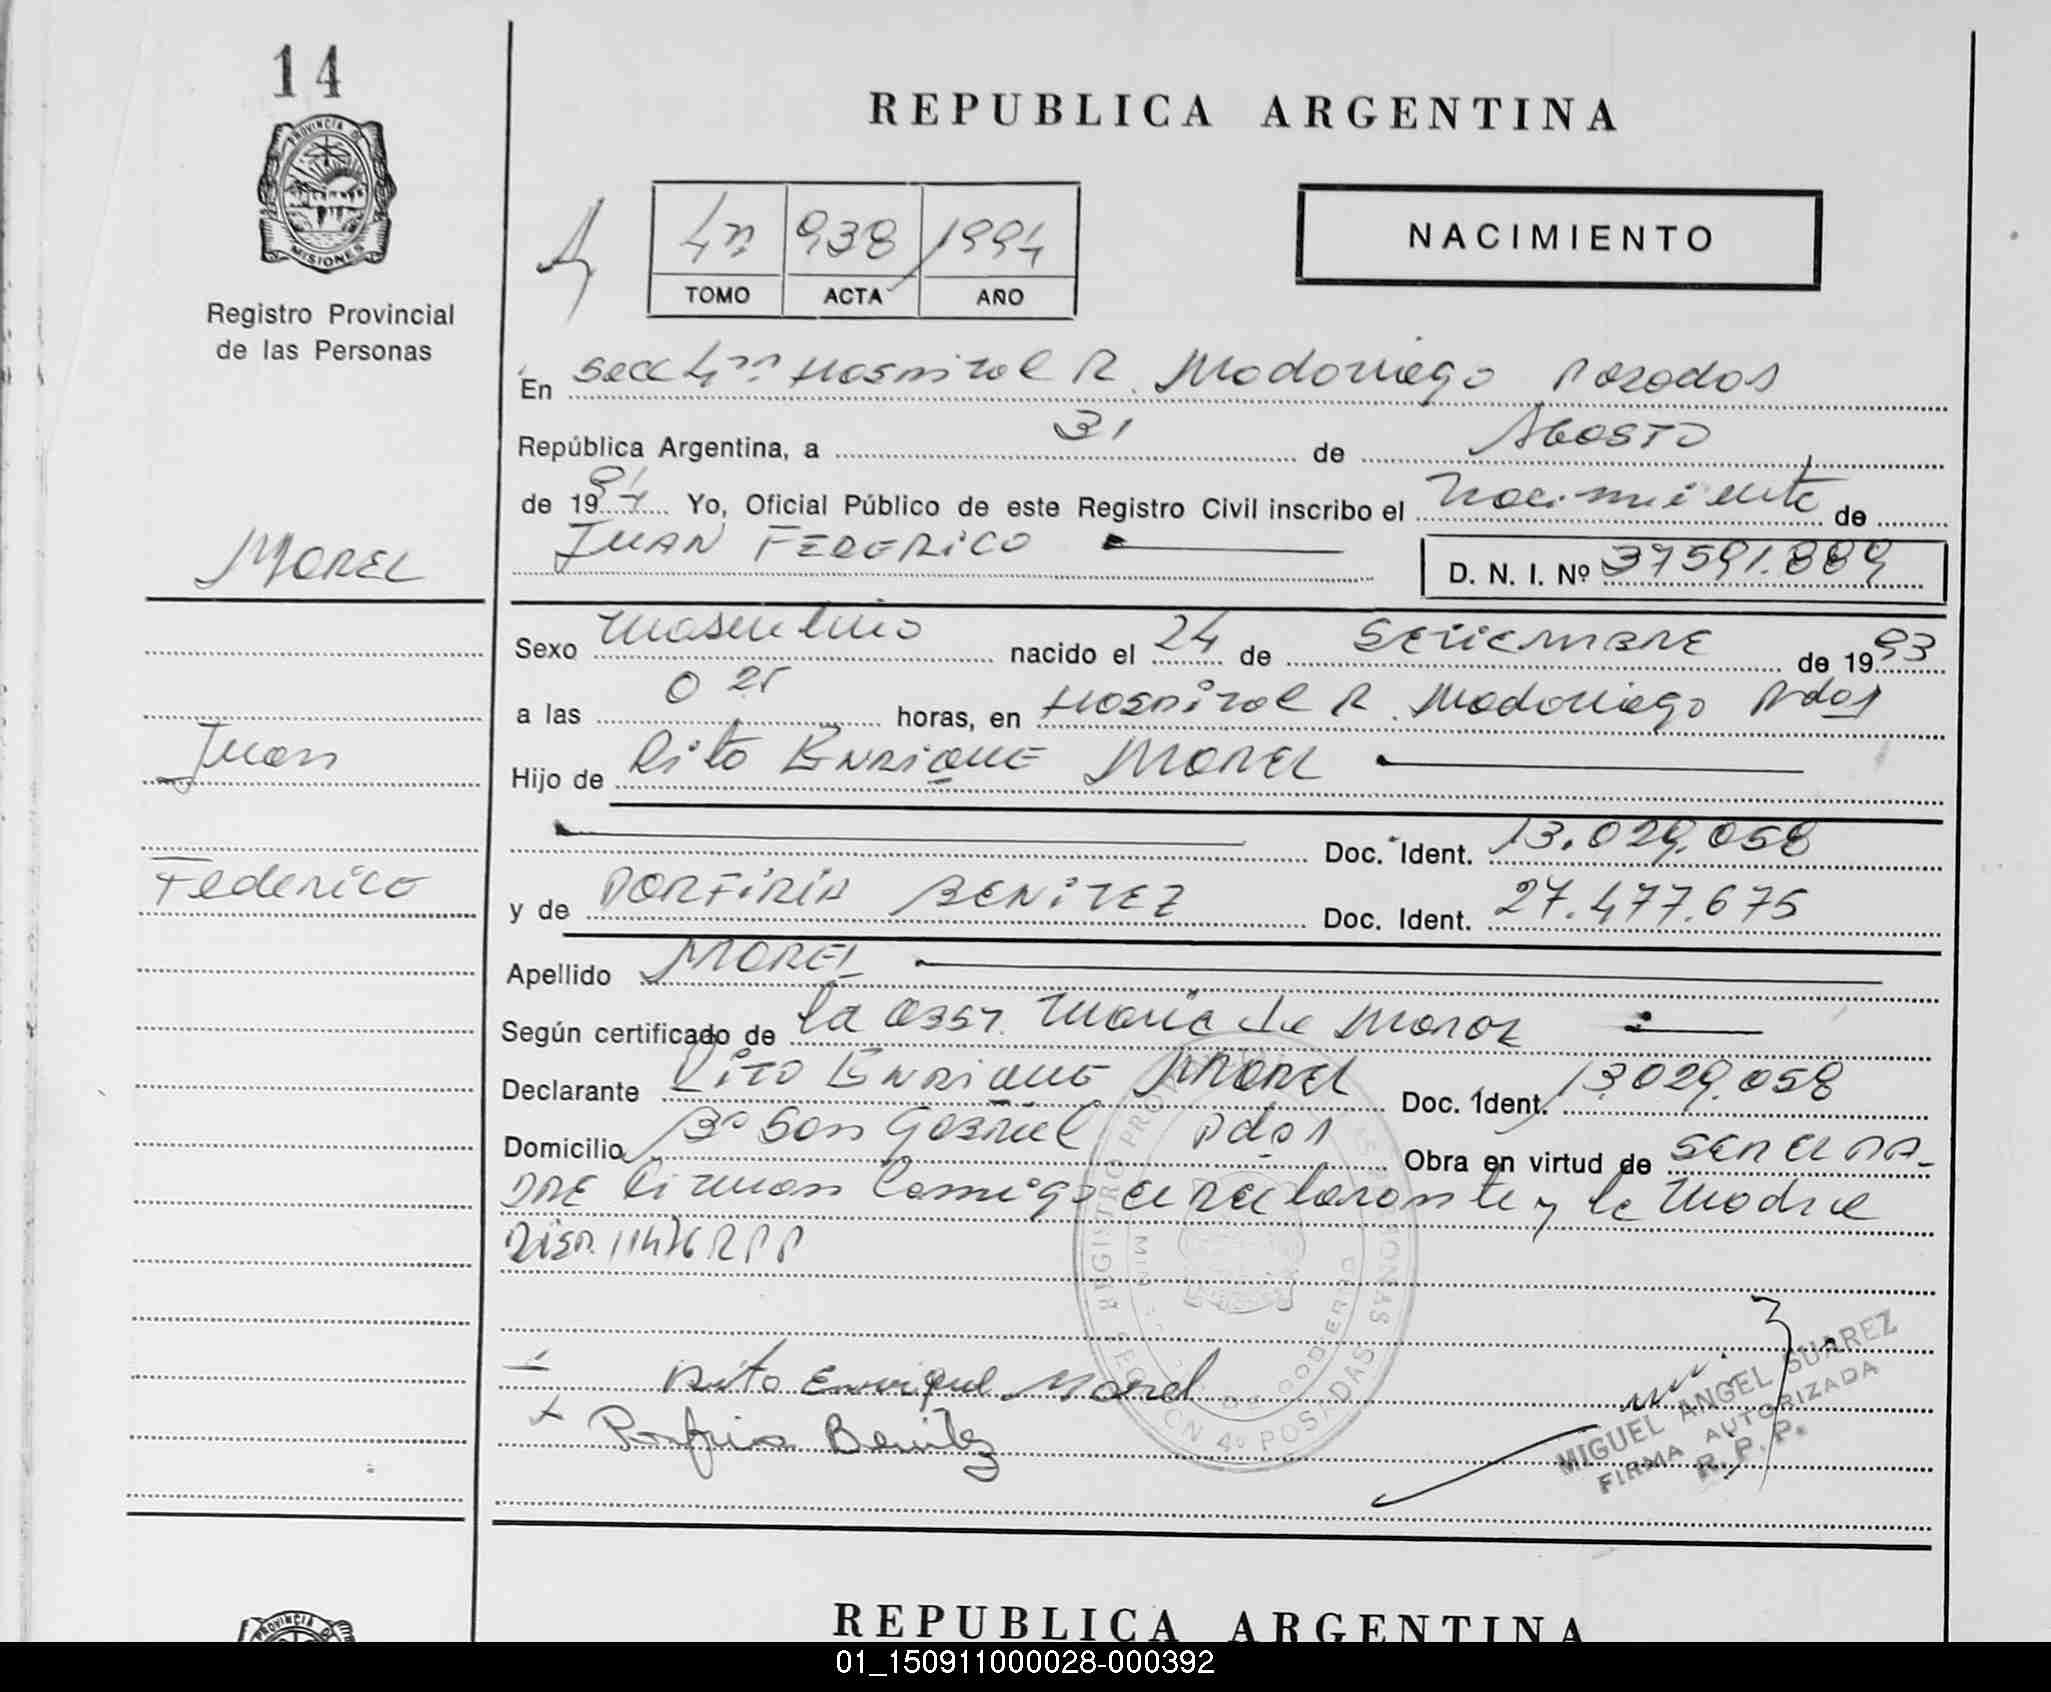 14
PROVINCIA DE
MISIONES
Registro Provincial
de las Personas
REPUBLICA ARGENTINA
938 1994
TOMO ACTA AÑO
NACIMIENTO
En Secc 4ta Hospital R. Madariaga Posadas
República Argentina, a 31 de AGOSTO
de 1994 Yo, Oficial Público de este Registro Civil inscribo el Nacimiento de
MOREL
JUAN FEDERICO D. N. I. Nº 37591.889
Sexo Masculino nacido el 24 de SETIEMBRE de 1993
a las 0 25 horas, en Hospital R. Madariaga Pdas
Juan
Hijo de Rito ENRIQUE MOREL
Doc. Ident. 13.029.058
Federico
y de PORFIRIA BENITEZ Doc. Ident. 27.477.675
Apellido MOREL
Según certificado de la Obst. Maria de
Declarante RITO ENRIQUE MOREL Doc. Ident. 13.029.058
Domicilio Bº San Gabriel Pdas Obra en virtud de SER EL PA-
DRE firman Conmigo el Declarante y la Madre
Disp.
Rito Enrique Morel
Porfiria Benitez
REGISTRO PROVINCIAL DE LAS PERSONAS
SECCION 4º POSADAS
MIGUEL ANGEL SUAREZ
FIRMA AUTORIZADA
R. P. P.
PROVINCIA DE
REPUBLICA ARGENTINA
01_150911000028-000392